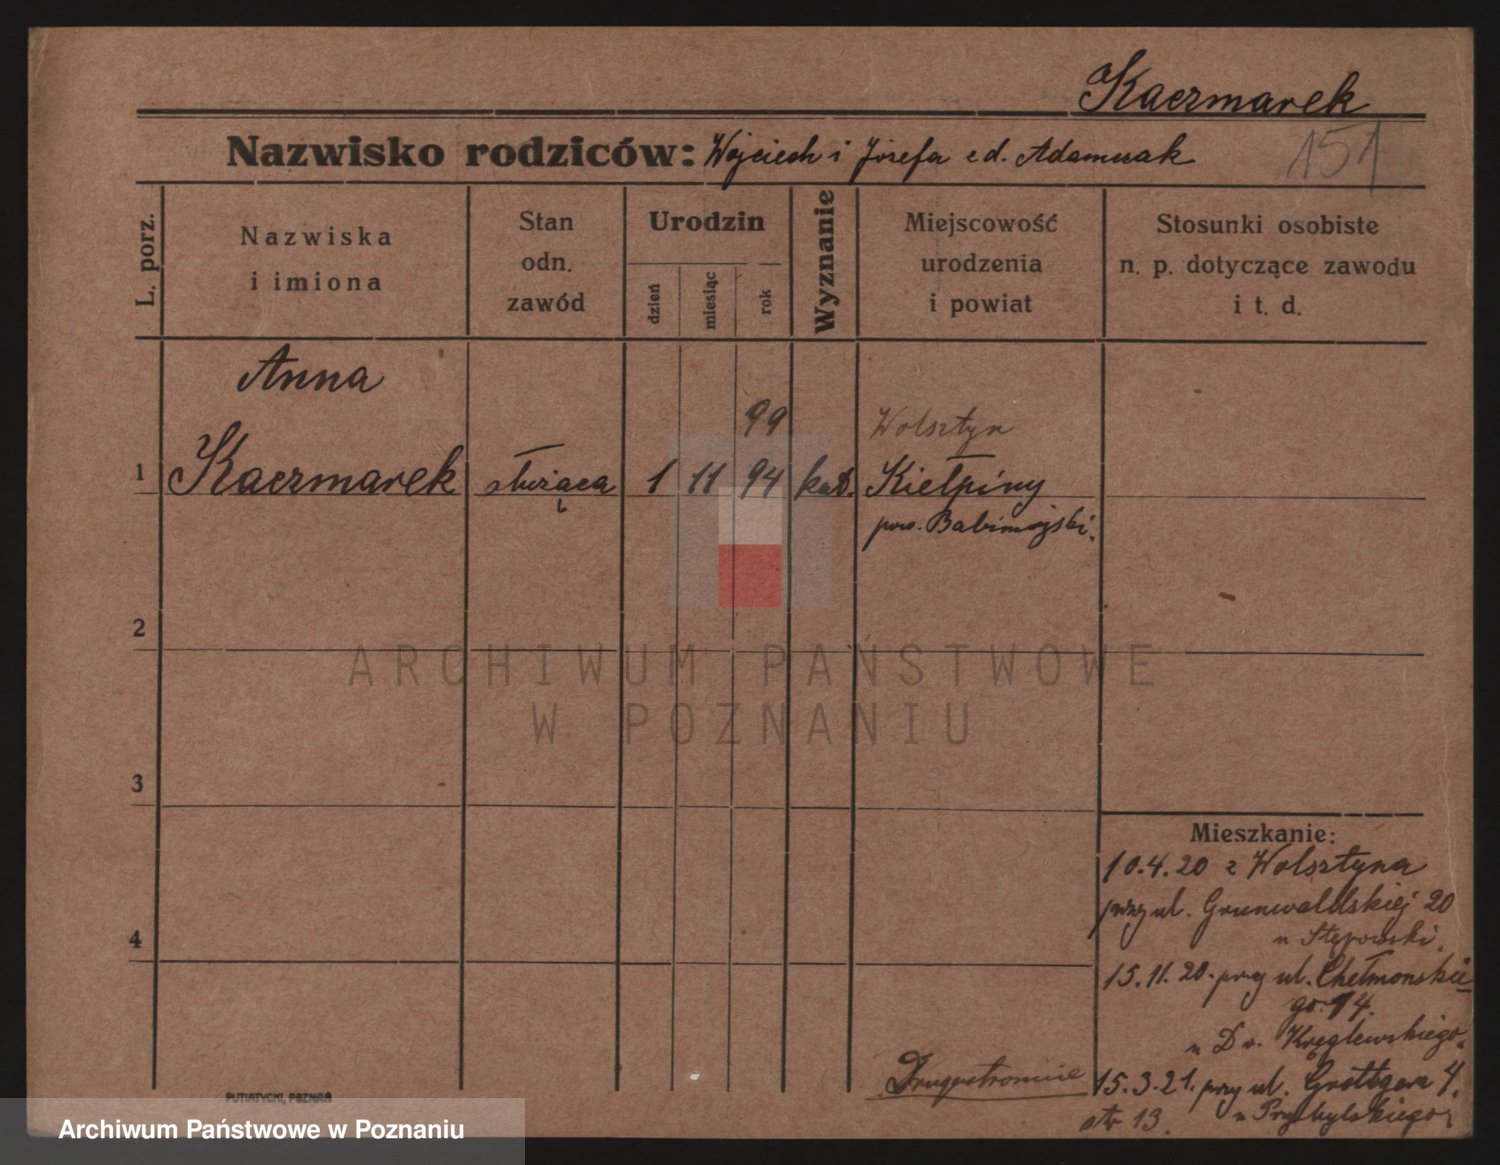 Kaczmarek
Nazwisko rodziców: Wojciech i Józefa z d. Adamczak
151
L. porz.
Nazwiska
i imiona
Stan
odn.
zawód
Urodzin
dzień
miesiąc
rok
Wyznanie
Miejscowość
urodzenia
i powiat
Stosunki osobiste
n. p. dotyczące zawodu
i t. d.
Anna
99 Wolsztyn
1 Kaczmarek służąca 1 11 94 kat. Kiełpiny
pow. Babimojski.
2
ARCHIWUM PAŃSTWOWE
W POZNANIU
3
Mieszkanie:
10.4.20 z Wolsztyna
przy ul. Grunwaldskiej 20
u Stępowski.
4
15.11.20. przy ul. Chełmońskie
go 14.
u Dr. Kręglewskiego.
Drugostronnie
15.3.21. przy ul. Grottgera 4.
u Przybylskiego
str 13.
PUTIATYCKI, POZNAŃ
Archiwum Państwowe w Poznaniu